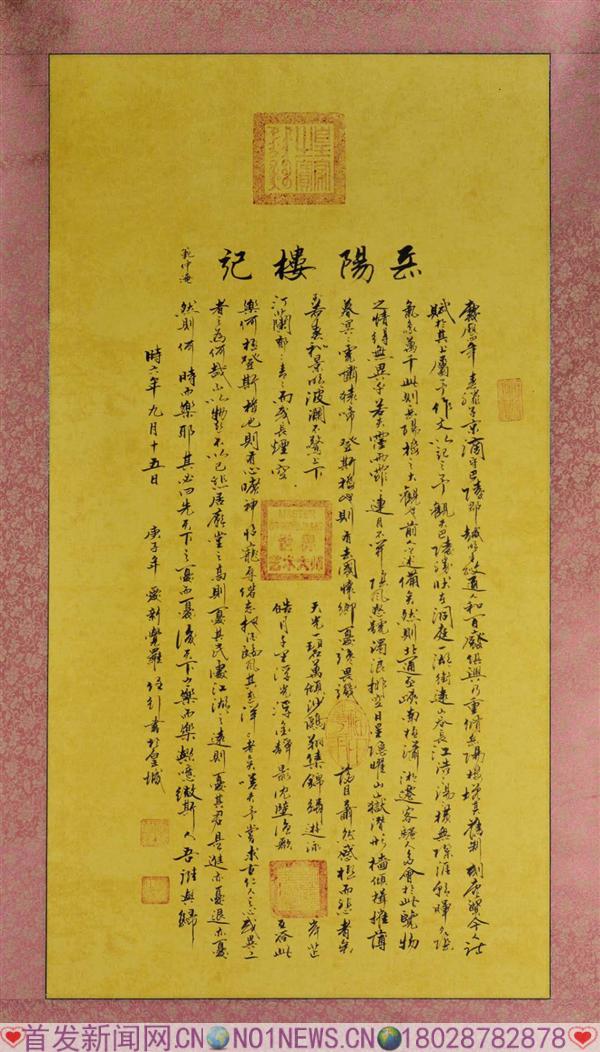 岳陽樓記
范仲淹
慶曆四年春滕子京謫守巴陵郡越明年政通人和百廢俱興乃重修岳陽樓增其舊制刻唐賢今人詩
賦於其上屬予作文以記之予觀夫巴陵勝狀在洞庭一湖銜遠山吞長江浩浩湯湯橫無際涯朝暉夕陰
氣象萬千此則岳陽樓之大觀也前人之述備矣然則北通巫峽南極瀟湘遷客騷人多會於此覽物
之情得無異乎若夫霪雨霏霏連月不開陰風怒號濁浪排空日星隱曜山嶽潛形檣傾楫摧薄
暮冥冥虎嘯猿啼登斯樓也則有去國懷鄉憂讒畏譏滿目蕭然感極而悲者矣
至若春和景明波瀾不驚上下天光一碧萬頃沙鷗翔集錦鱗游泳岸芷
汀蘭郁郁青青而或長煙一空皓月千里浮光躍金靜影沈璧漁歌互答此
樂何極登斯樓也則有心曠神怡寵辱偕忘把酒臨風其喜洋洋者矣嗟夫予嘗求古仁人之心或異二
者之為何哉不以物喜不以己悲居廟堂之高則憂其民處江湖之遠則憂其君是進亦憂退亦憂
然則何時而樂耶其必曰先天下之憂而憂後天下之樂而樂歟噫微斯人吾誰與歸
時六年九月十五日 庚子年 愛新覺羅 書於皇城
首发新闻网.CN NO1NEWS.CN 18028782878